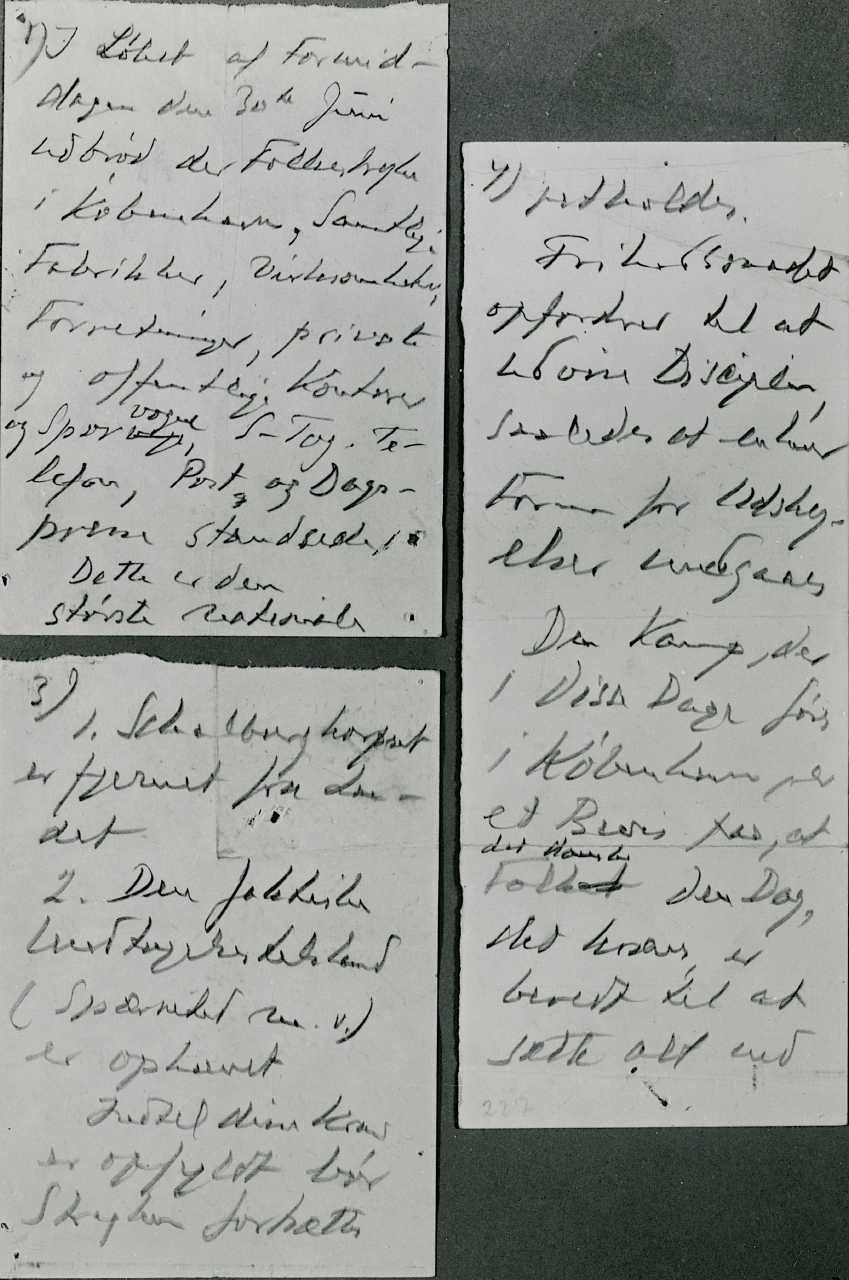 1) I Løbet af Formid-
dagen den 30te Juni
udbrød der Folkestrejke
i København, Samtlige
Fabrikker, Virksomheder,
Forretninger, private
og offentlige Kontorer
og Sporvogne, S-Tog. Te-
lefon, Post og Dags-
presse standsede.
Dette er den
største nationale
3)
1. Schalburgkorpset
er fjernet fra Lan-
det
2. Den faktiske
Undtagelsestilstand
(Spærretid m. v.)
er ophævet
Indtil disse Krav
er opfyldt bør
Strejken fortsætte
4) fastholdes.
Frihedsraadet
opfordrer til at
udvise Disciplin,
saaledes at enhver
Form for Udskej-
elser undgaaes
Den Kamp, der
i disse Dage føres
i København, er
et Bevis paa, at
det danske
Folk den Dag,
det kræves, er
beredt til at
sætte alt ind
222